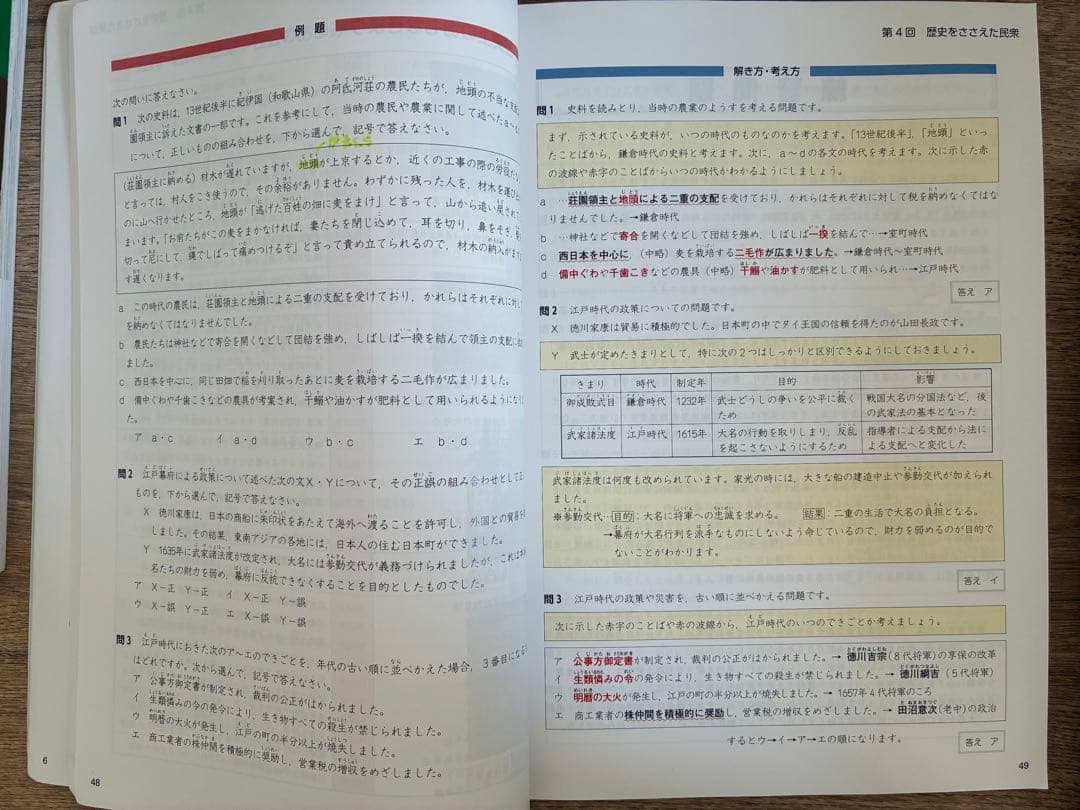 例題
次の問いに答えなさい。
問1 次の史料は、13世紀後半に紀伊国(和歌山県)の阿氐河荘の農民たちが、地頭の不当な
園領主に訴えた文書の一部です。これを参考にして、当時の農民や農業に関して述べた
について、正しいものの組み合わせを、下から選んで、記号で答えなさい。
(荘園領主に納める)材木が遅れていますが、地頭が上京するとか、近くの工事の際の労役だ
と言っては、村人をこき使うので、その余裕がありません。わずかに残った人を、材木を運び
のに山へ行かせたところ、地頭が「逃げた百姓の畑に麦をまけ」と言って、山から追い戻され
まいます。「お前たちがこの麦をまかなければ、妻たちを閉じ込めて、耳を切り、鼻をそぎ、
切って尼にして、縄でしばって痛めつけるぞ」と言って責め立てられるので、材木の納入が
す遅くなります。
a この時代の農民は、荘園領主と地頭による二重の支配を受けており、かれらはそれぞれに対し
を納めなくてはなりませんでした。
b 農民たちは神社などで寄合を開くなどして団結を強め、しばしば一揆を結んで領主の支配に
ました。
c 西日本を中心に、同じ田畑で稲を刈り取ったあとに麦を栽培する二毛作が広まりました。
d 備中ぐわや千歯こきなどの農具が考案され、干鰯や油かすが肥料として用いられるように
た。
ア a・c イ a・d ウ b・c エ b・d
問2 江戸幕府による政策について述べた次の文X・Yについて、その正誤の組み合わせとして
ものを、下から選んで、記号で答えなさい。
X 徳川家康は、日本の商船に朱印状をあたえて海外へ渡ることを許可し、外国との貿易を
しました。その結果、東南アジアの各地には、日本人の住む日本町ができました。
Y 1635年に武家諸法度が改定され、大名には参勤交代が義務づけられましたが、これは
名たちの財力を弱め、幕府に反抗できなくすることを目的としたものでした。
ア X-正 Y-正 イ X-正 Y-誤
ウ X-誤 Y-正 エ X-誤 Y-誤
問3 江戸時代におきた次のア～エのできごとを、年代の古い順に並べかえた場合、3番目になる
はどれですか。次から選んで、記号で答えなさい。
ア 公事方御定書が制定され、裁判の公正がはかられました。
イ 生類憐みの令の発令により、生き物すべての殺生が禁じられました。
ウ 明暦の大火が発生し、江戸の町の半分以上が焼失しました。
エ 商工業者の株仲間を積極的に奨励し、営業税の増収をめざしました。
6
48
第4回 歴史をささえた民衆
解き方・考え方
問1 史料を読みとり、当時の農業のようすを考える問題です。
まず、示されている史料が、いつの時代のものなのかを考えます。「13世紀後半」、「地頭」とい
ったことばから、鎌倉時代の史料と考えます。次に、a～dの各文の時代を考えます。次に示した
赤の波線や赤字のことばからいつの時代かわかるようにしましょう。
a …荘園領主と地頭による二重の支配を受けており、かれらはそれぞれに対して税を納めなくては
なりませんでした。→鎌倉時代
b …神社などで寄合を開くなどして団結を強め、しばしば一揆を結んで…→室町時代
c 西日本を中心に、(中略)麦を栽培する二毛作が広まりました。→鎌倉時代～室町時代
d 備中ぐわや千歯こきなどの農具(中略)干鰯や油かすが肥料として用いられ…→江戸時代
答え ア
問2 江戸時代の政策についての問題です。
X 徳川家康は貿易に積極的でした。日本町の中でタイ王国の信頼を得たのが山田長政です。
Y 武士が定めたきまりとして、特に次の2つはしっかりと区別できるようにしておきましょう。
きまり 時代 制定年 目的 影響
御成敗式目 鎌倉時代 1232年 武士どうしの争いを公平に裁くため 戦国大名の分国法など、後の武家法の基本となった
武家諸法度 江戸時代 1615年 大名の行動を取りしまり、反乱を起こさないようにするため 指導者による支配から法による支配へと変化した
武家諸法度は何度も改められています。家光の時には、大きな船の建造中止や参勤交代が加えられ
ました。
※参勤交代…目的:大名に将軍への忠誠を求める。 結果:二重の生活で大名の負担となる。
→幕府が大名行列を派手なものにしないよう命じているので、財力を弱めるのが目的で
ないことがわかります。
答え イ
問3 江戸時代の政策や災害を、古い順に並べかえる問題です。
次に示した赤字のことばや赤の波線から、江戸時代のいつのできごとか考えましょう。
ア 公事方御定書が制定され、裁判の公正がはかられました。→徳川吉宗(8代将軍)の享保の改革
イ 生類憐みの令の発令により、生き物すべての殺生が禁じられました。→徳川綱吉(5代将軍)
ウ 明暦の大火が発生し、江戸の町の半分以上が焼失しました。→1657年4代将軍のころ
エ 商工業者の株仲間を積極的に奨励し、営業税の増収をめざしました。→田沼意次(老中)の政治
するとウ→イ→ア→エの順になります。
答え ア
49